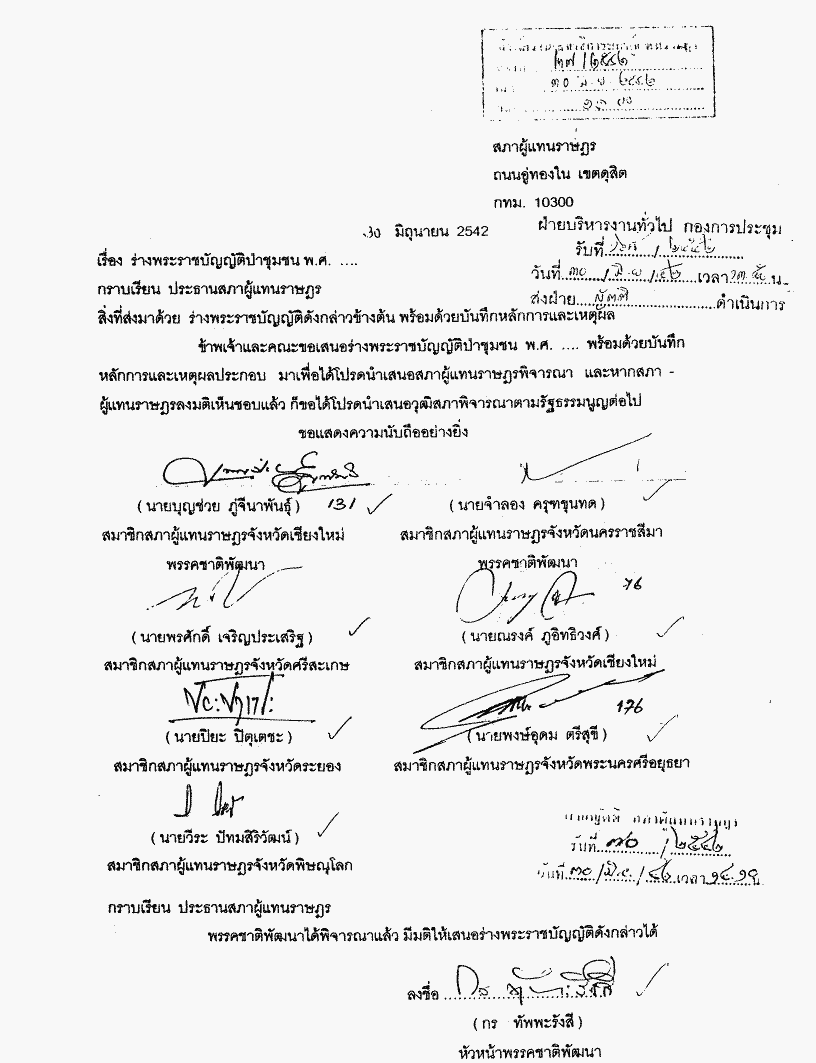 ๒๗ / ๒๕๔๒
๓๐ มิ.ย. ๒๕๔๒
สภาผู้แทนราษฎร
ถนนอู่ทองใน เขตดุสิต
กทม. 10300
30 มิถุนายน 2542
ฝ่ายบริหารงานทั่วไป กองการประชุม
รับที่ / ๒๕๔๒
วันที่ ๓๐ / มิ.ย / ๔๒ เวลา น.
ส่งฝ่าย ญัตติ ดำเนินการ
เรื่อง ร่างพระราชบัญญัติป่าชุมชน พ.ศ. ....
กราบเรียน ประธานสภาผู้แทนราษฎร
สิ่งที่ส่งมาด้วย ร่างพระราชบัญญัติดังกล่าวข้างต้น พร้อมด้วยบันทึกหลักการและเหตุผล
ข้าพเจ้าและคณะขอเสนอร่างพระราชบัญญัติป่าชุมชน พ.ศ. .... พร้อมด้วยบันทึก
หลักการและเหตุผลประกอบ มาเพื่อได้โปรดนำเสนอสภาผู้แทนราษฎรพิจารณา และหากสภา -
ผู้แทนราษฎรลงมติเห็นชอบแล้ว ก็ขอได้โปรดนำเสนอวุฒิสภาพิจารณาตามรัฐธรรมนูญต่อไป
ขอแสดงความนับถืออย่างยิ่ง
( นายบุญช่วย ภู่จีนาพันธุ์ ) 131 ( นายจำลอง ครุฑขุนทด )
สมาชิกสภาผู้แทนราษฎรจังหวัดเชียงใหม่ สมาชิกสภาผู้แทนราษฎรจังหวัดนครราชสีมา
พรรคชาติพัฒนา พรรคชาติพัฒนา
76
( นายพรศักดิ์ เจริญประเสริฐ ) ( นายณรงค์ ภูอิทธิวงศ์ )
สมาชิกสภาผู้แทนราษฎรจังหวัดศรีสะเกษ สมาชิกสภาผู้แทนราษฎรจังหวัดเชียงใหม่
176
( นายปิยะ ปิตุเตชะ ) ( นายพงษ์อุดม ตรีสุขี )
สมาชิกสภาผู้แทนราษฎรจังหวัดระยอง สมาชิกสภาผู้แทนราษฎรจังหวัดพระนครศรีอยุธยา
( นายวีระ ปัทมสิริวัฒน์ )
สมาชิกสภาผู้แทนราษฎรจังหวัดพิษณุโลก
สภาผู้แทนราษฎร
รับที่ ๓๐ / ๒๕๔๒
วันที่ ๓๐ / มิ.ย. / ๔๒ เวลา ๑๔.๑๐
กราบเรียน ประธานสภาผู้แทนราษฎร
พรรคชาติพัฒนาได้พิจารณาแล้ว มีมติให้เสนอร่างพระราชบัญญัติดังกล่าวได้
ลงชื่อ กร ทัพพะรังสี
( กร ทัพพะรังสี )
หัวหน้าพรรคชาติพัฒนา